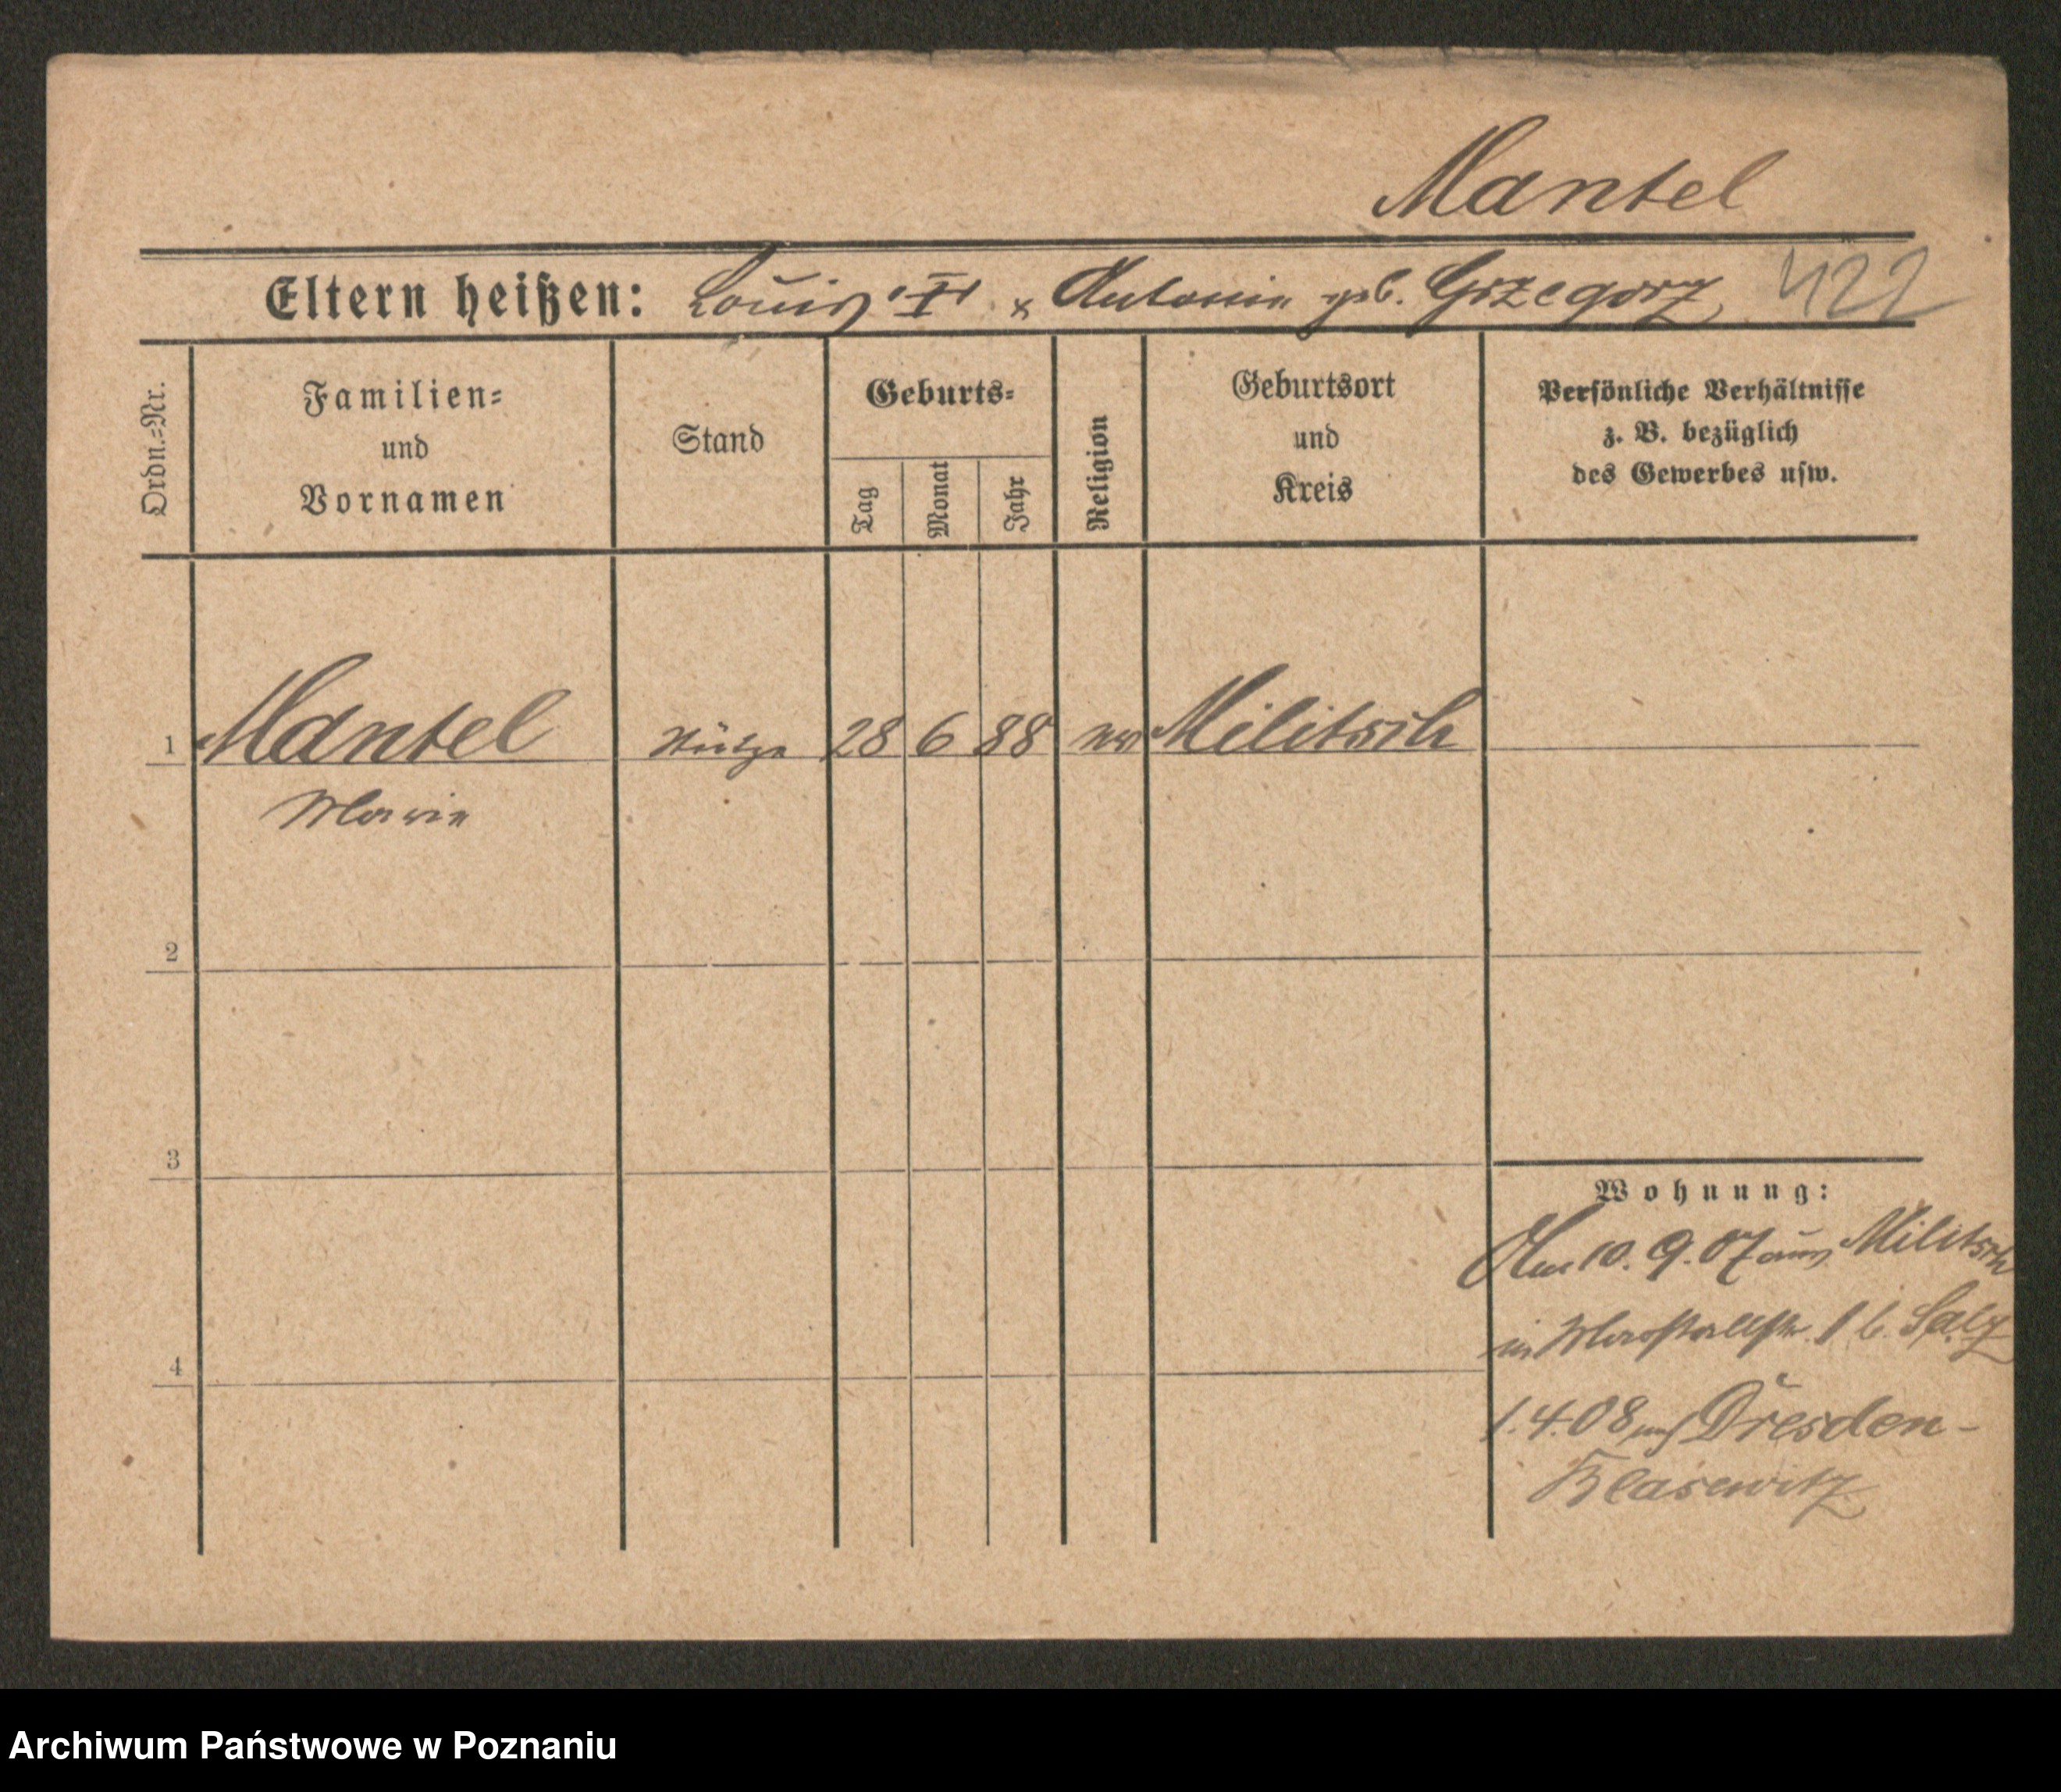 Mantel
Eltern heißen: Louis II u Antonie geb. Grzegorz 422
Ordn.=Nr.
Familien=
und
Vornamen
Stand
Geburts=
Tag
Monat
Jahr
Religion
Geburtsort
und
Kreis
Persönliche Verhältnisse
z. B. bezüglich
des Gewerbes usw.
1 Mantel Stütze 28 6 88 Militsch
Marie
2
3
4
Wohnung:
Am 10. 9. 07 aus Militsch
in Marstallstr. b. Salz
1.4.08 nach Dresden-
Blasewitz
Archiwum Państwowe w Poznaniu